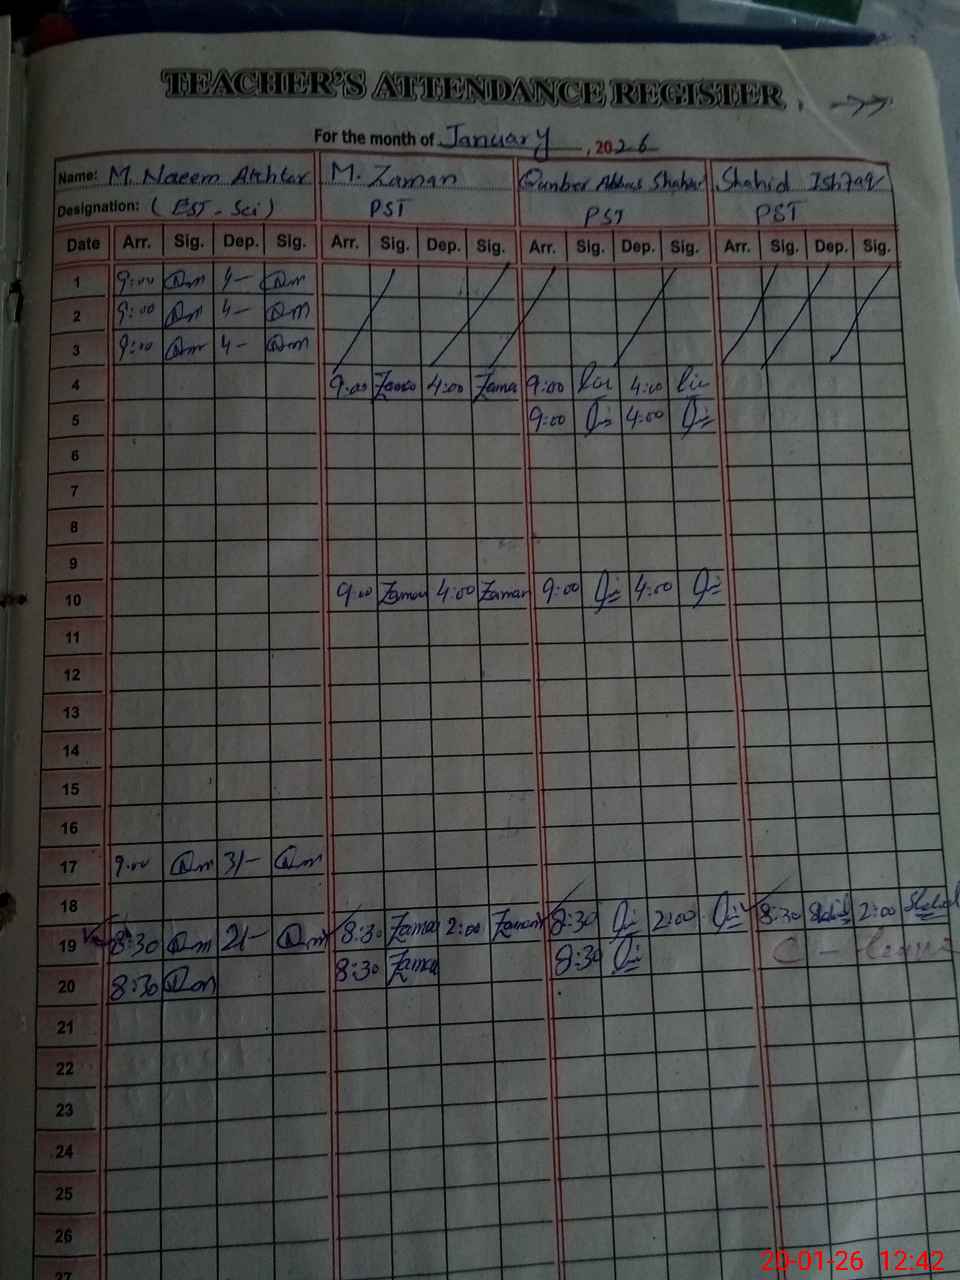 TEACHER'S ATTENDANCE REGISTER
For the month of January, 2026
Name: M. Naeem Akhtar M. Zaman Qunber Abbas Shahid Ishtaq
Designation: (EST - Sci) PST PST PST
Date Arr. Sig. Dep. Sig. Arr. Sig. Dep. Sig. Arr. Sig. Dep. Sig. Arr. Sig. Dep. Sig.
1 9:00 4-
2 9:00 4-
3 9:00 4-
4 9:00 Zaman 4:00 Zaman 9:00 4:00
5 9:00 4:00
6
7
8
9
10 9:00 Zaman 4:00 Zaman 9:00 4:00
11
12
13
14
15
16
17 9:00 3/-
18
19 8:30 2/- 8:30 Zaman 2:00 Zaman 8:30 2:00 8:30 Shahid 2:00 Shahid
20 8:30 8:30 Zaman 8:30 C - leave
21
22
23
24
25
26
27
20-01-26 12:42